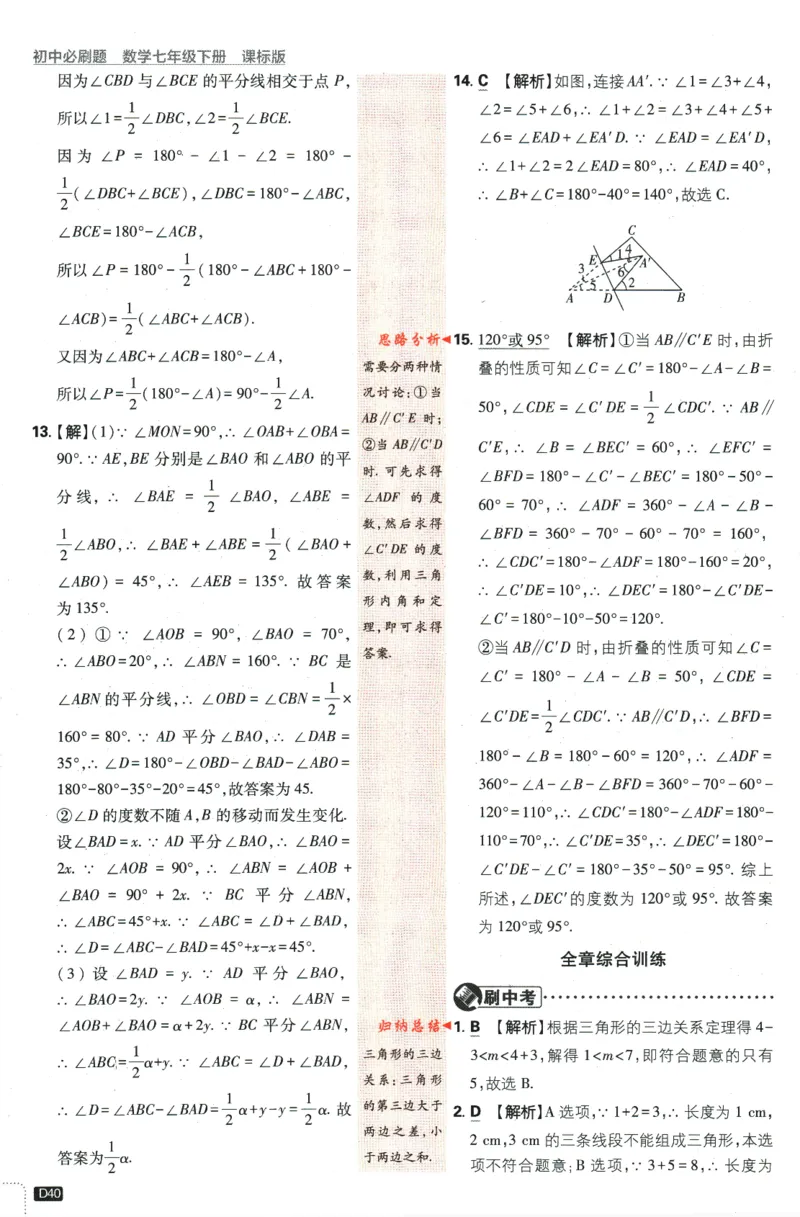 初中必刷题 数学七年级下册 课标版
因为∠CBD 与∠BCE 的平分线相交于点 P,
所以∠1=1/2∠DBC,∠2=1/2∠BCE.
因为 ∠P = 180° - ∠1 - ∠2 = 180° -
1/2(∠DBC+∠BCE),∠DBC=180°-∠ABC,
∠BCE=180°-∠ACB,
所以∠P=180°-1/2(180°-∠ABC+180°-
∠ACB)=1/2(∠ABC+∠ACB).
又因为∠ABC+∠ACB=180°-∠A,
所以∠P=1/2(180°-∠A)=90°-1/2∠A.
13.【解】(1)∵ ∠MON=90°,∴ ∠OAB+∠OBA=
90°.∵ AE,BE 分别是∠BAO 和∠ABO 的平
分线, ∴ ∠BAE = 1/2 ∠BAO, ∠ABE =
1/2∠ABO,∴ ∠BAE+∠ABE=1/2(∠BAO+
∠ABO) = 45°, ∴ ∠AEB = 135°. 故答案
为135°.
(2) ① ∵ ∠AOB = 90°, ∠BAO = 70°,
∴ ∠ABO=20°,∴ ∠ABN = 160°. ∵ BC 是
∠ABN 的平分线,∴ ∠OBD=∠CBN=1/2×
160°=80°. ∵ AD 平分∠BAO,∴ ∠DAB=
35°,∴ ∠D=180°-∠OBD-∠BAD-∠ABO=
180°-80°-35°-20°=45°,故答案为 45.
②∠D 的度数不随 A,B 的移动而发生变化.
设∠BAD=x.∵ AD 平分∠BAO,∴ ∠BAO=
2x. ∵ ∠AOB = 90°, ∴ ∠ABN = ∠AOB +
∠BAO = 90° + 2x. ∵ BC 平分 ∠ABN,
∴ ∠ABC=45°+x.∵ ∠ABC = ∠D+∠BAD,
∴ ∠D=∠ABC-∠BAD=45°+x-x=45°.
(3) 设 ∠BAD = y. ∵ AD 平分 ∠BAO,
∴ ∠BAO=2y. ∵ ∠AOB = α, ∴ ∠ABN =
∠AOB+∠BAO=α+2y.∵ BC 平分∠ABN,
∴ ∠ABC=1/2α+y.∵ ∠ABC = ∠D+∠BAD,
∴ ∠D=∠ABC-∠BAD=1/2α+y-y=1/2α. 故
答案为1/2α.
D40
思路分析
需要分两种情
况讨论:①当
AB∥C′E 时;
②当 AB∥C′D
时. 可先求得
∠ADF 的度
数,然后求得
∠C′DE 的度
数,利用三角
形内角和定
理,即可求得
答案.
归纳总结
三角形的三边
关系:三角形
的第三边大于
两边之差,小
于两边之和.
14. C 【解析】如图,连接AA′.∵ ∠1=∠3+∠4,
∠2=∠5+∠6,∴ ∠1+∠2=∠3+∠4+∠5+
∠6=∠EAD+∠EA′D. ∵ ∠EAD=∠EA′D,
∴ ∠1+∠2=2∠EAD=80°,∴ ∠EAD=40°,
∴ ∠B+∠C=180°-40°=140°,故选 C.
C
E 1 4
3 6 A′
5 2
A D B
15. 120°或 95° 【解析】①当 AB∥C′E 时,由折
叠的性质可知∠C=∠C′=180°-∠A-∠B=
50°,∠CDE = ∠C′DE = 1/2∠CDC′. ∵ AB∥
C′E,∴ ∠B = ∠BEC′ = 60°,∴ ∠EFC′ =
∠BFD=180°-∠C′-∠BEC′=180°-50°-
60° = 70°,∴ ∠ADF = 360° - ∠A - ∠B -
∠BFD = 360° - 70° - 60° - 70° = 160°,
∴ ∠CDC′=180°-∠ADF=180°-160°=20°,
∴ ∠C′DE=10°,∴ ∠DEC′=180°-∠C′DE-
∠C′=180°-10°-50°=120°.
②当 AB∥C′D 时,由折叠的性质可知∠C=
∠C′ = 180° - ∠A - ∠B = 50°, ∠CDE =
∠C′DE=1/2∠CDC′.∵ AB∥C′D,∴ ∠BFD=
180°-∠B=180°-60°=120°,∴ ∠ADF=
360°-∠A-∠B-∠BFD=360°-70°-60°-
120°=110°,∴ ∠CDC′=180°-∠ADF=180°-
110°=70°,∴ ∠C′DE=35°,∴ ∠DEC′=180°-
∠C′DE-∠C′=180°-35°-50°=95°. 综上
所述,∠DEC′的度数为 120°或 95°. 故答案
为 120°或 95°.
全章综合训练
刷中考
1. B 【解析】根据三角形的三边关系定理得 4-
3<m<4+3,解得 1<m<7,即符合题意的只有
5,故选 B.
2. D 【解析】A 选项,∵ 1+2=3,∴ 长度为 1 cm,
2 cm,3 cm 的三条线段不能组成三角形,本选
项不符合题意;B 选项,∵ 3+5=8,∴ 长度为